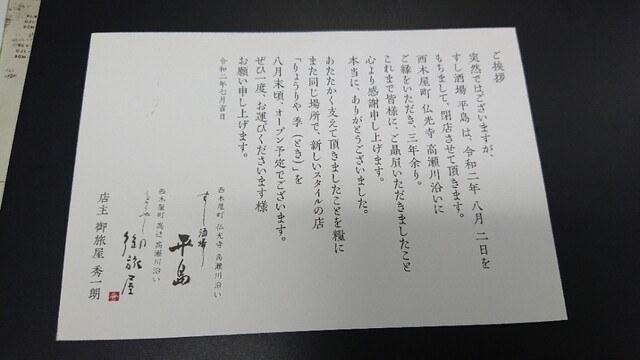 ご挨拶
突然ではございますが、
すし酒場 平島は、令和二年 八月 二日を
もちまして、閉店させて頂きます。
西木屋町 仏光寺 高瀬川沿いに
ご縁をいただき、三年余り。
これまで皆様に、ご贔屓いただきましたこと
心より感謝申し上げます。
本当に、ありがとうございました。
あたたかく支えて頂きましたことを糧に
また同じ場所で、新しいスタイルの店
「りょうりや 季（とき）」を
八月末頃、オープン予定でございます。
ぜひ一度、お運びくださいます様
お願い申し上げます。
令和二年七月吉日
西木屋町 仏光寺 高瀬川沿い
すし酒場 平島
西木屋町 高辻 高瀬川沿い
りょうりや 御旅屋
店主 御旅屋 秀一朗